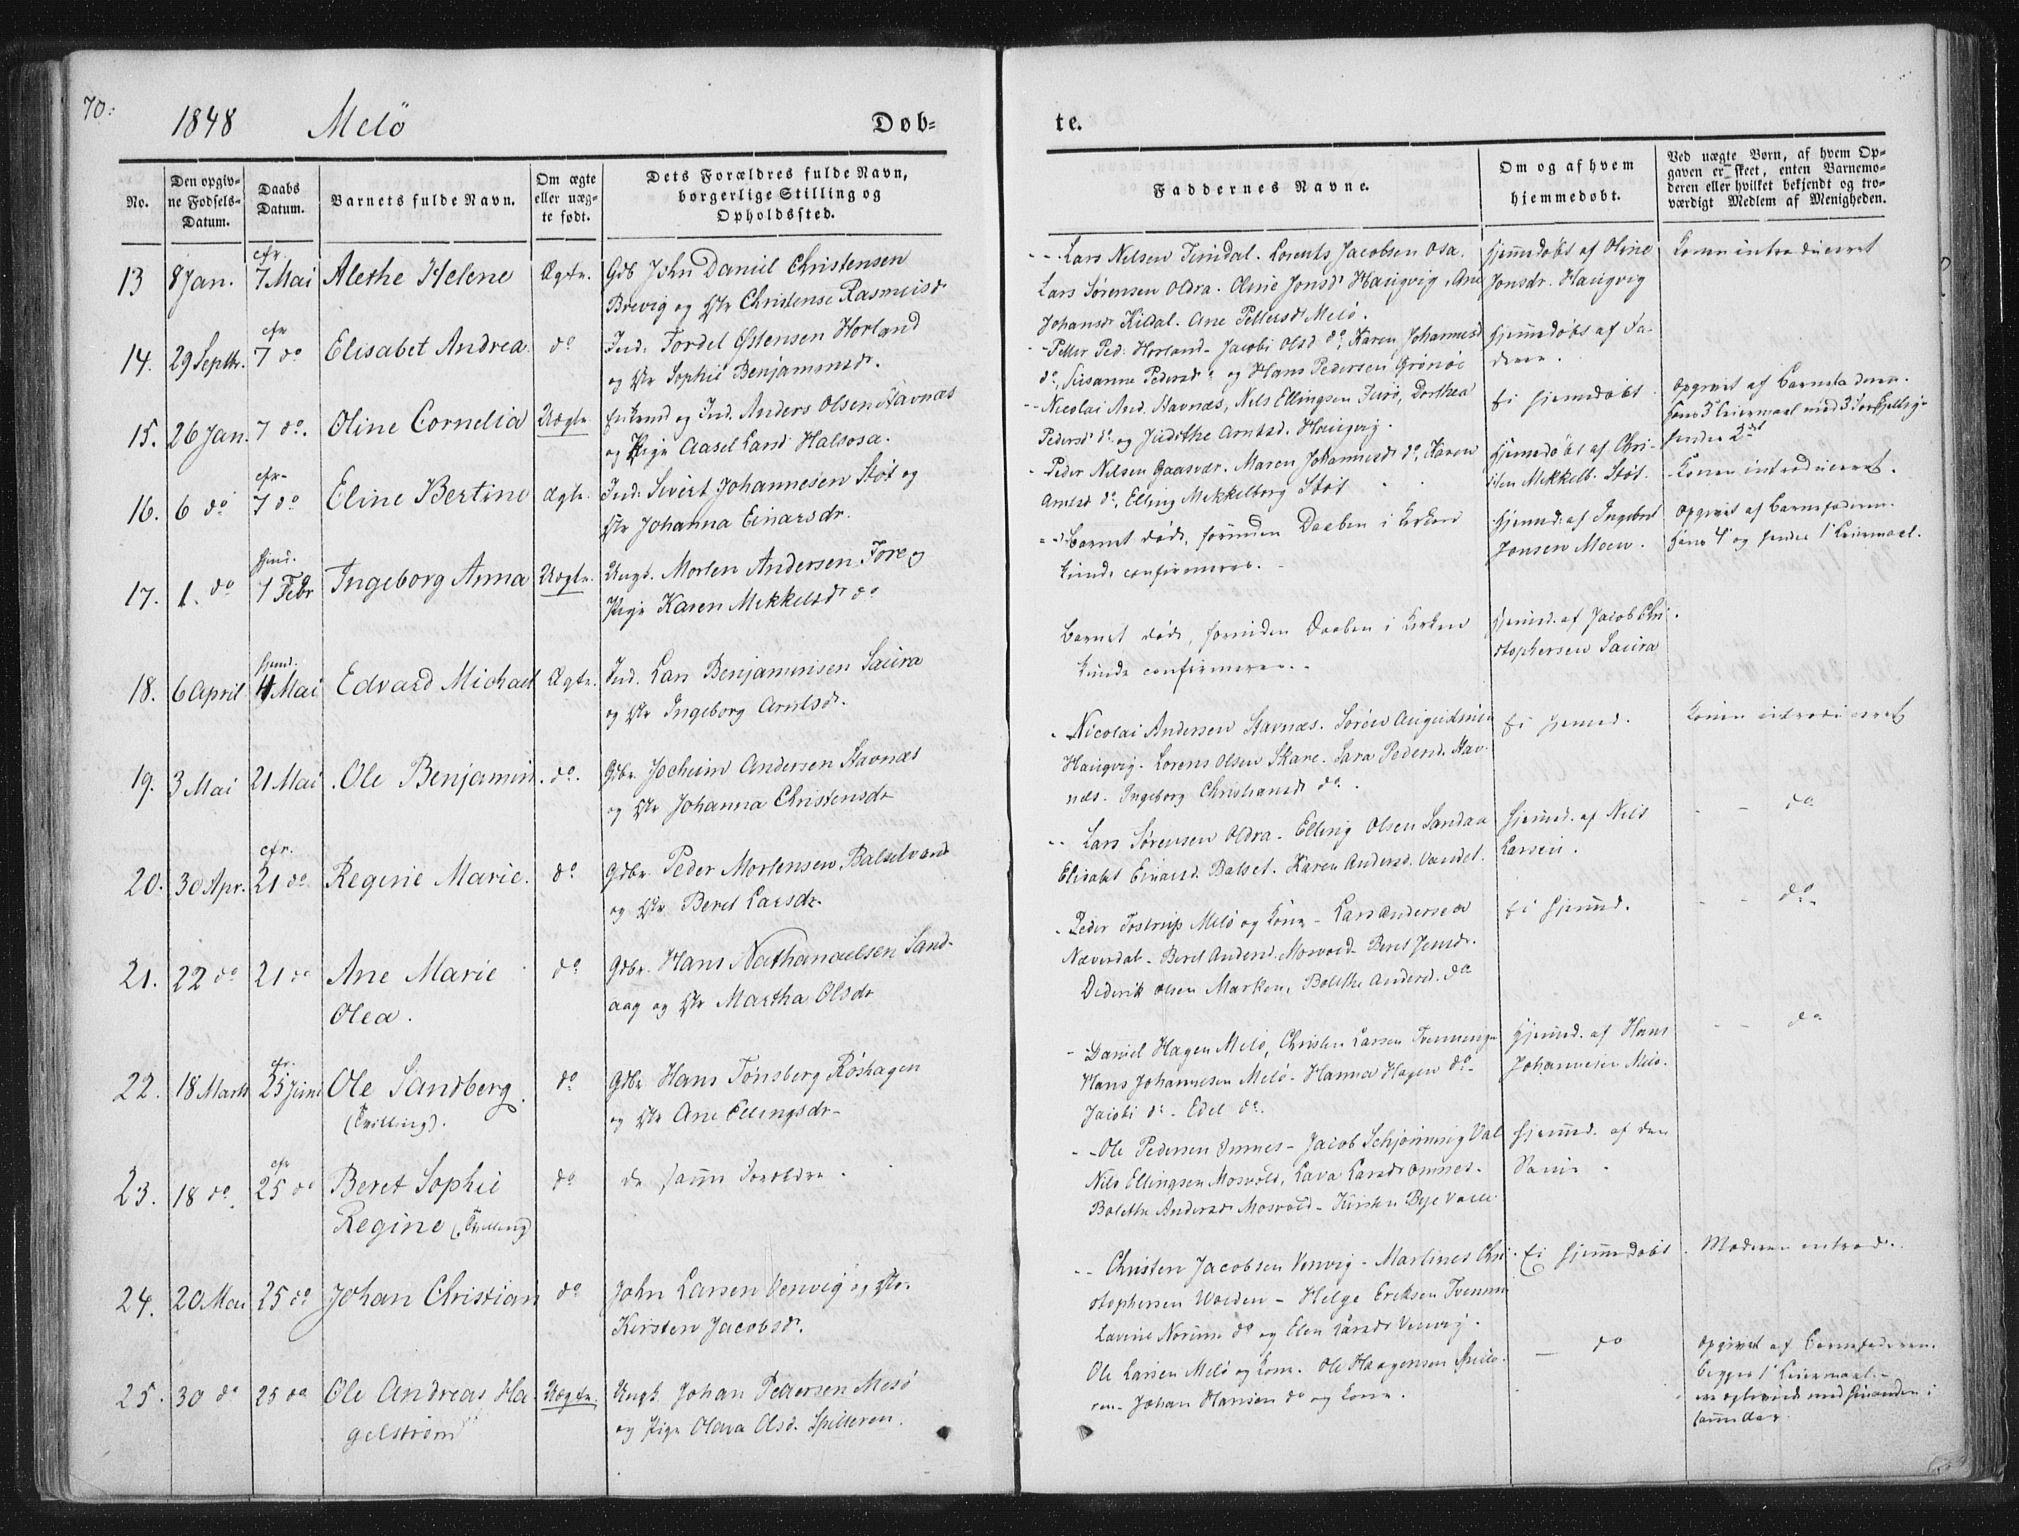 70.
1848 Melö Døb-
te.
No.
Den opgiv-
ne Fødsels-
Datum.
Daabs
Datum.
Barnets fulde Navn.
Om ægte
eller uæg-
te født.
Dets Forældres fulde Navn,
borgerlige Stilling og
Opholdssted.
Faddernes Navne.
Om og af hvem
hjemmedøbt.
Ved uægte Børn, af hvem Op-
gaven er skeet, enten Barnemo-
deren eller hvilket bekjendt og tro-
værdigt Medlem af Menigheden.
13 8 Jan. cfr 7 Mai Alethe Helene Ægte.
Gdb John Daniel Christensen
Brevig og Christense Rasmusdr
Lars Nilsen Lorents Jacobsen Osa.
Lars Sørensen Oldra. Oline Jonsdr Haugvig, Ane
Johansdr Kildal. Ane Pettersdr Melø.
Hjemdøbt af Oline
Jonsdr. Haugvig
Konen introduceret
14. 29 Septbr. cfr 7 do Elisabet Andrea do
Ind. Tordel Østensen Horland
og Sophie Benjaminsd.
Petter Ped. Horland. Jacobi Olsd do, Karen Johannesd
do, Susanna Pedersd og Hans Pedersen Grønøe
Hjemdøbt af Fa-
deren.
15. 26 Jan. 7 do. Oline Cornelia Uægte
Enkemd og Ind. Anders Olsen Stavnæs
og Pige Aasel Larsd Halsosa.
Nicolai And. Stavnæs, Nils Ellingsen Dorthea
Pedersd do og Judithe Arntsd. Haugvig.
Ei hjemdøbt
Opgivet af Barnefaderen.
hans 3 Leiermaal med 3
hendes 2det
16. 6 do cfr 7 do Eline Bertine Ægte.
Ind. Sivert Johannesen Støt og
Johanna Einarsdr.
Peder Nilsen Gaasvær. Maren Johannesd do, Karen
Arntsd do, Elling Mekkelborg Støt
Hjemdøbt af Chri-
sten Mekkelb. Støt.
Konen introduceret.
17. 1. do hjemd. 1 Febr Ingeborg Anna Uægte.
Ungk. Morten Andersen Fore og
Pige Karen Mekkelsdr do
Barnet døde, forinden Daaben i Kirken
kunde confirmeres.
Hjemd. af Ingebrt
Jonsen Moen.
Opgivet af Barnefaderen.
hans 4 og hendes 1 Leiermaal.
18. 6 April hjemd. 4 Mai Edvard Michael Ægte.
Ind. Lars Benjaminsen Saura
og Ingeborg Arntsdr.
Barnet døde, forinden Daaben i Kirken
kunde confirmeres.
Hjemd. af Jacob Chri-
stophersen Saura
19. 3 Mai 21 Mai Ole Benjamin do.
Gdbr. Jochum Andersen Stavnæs
og Johanna Christensdr
Nicolai Andersen Stavnæs. Søren
Haugvig. Lorens Olsen Skare. Sara Pedersd. Stav-
næs. Ingeborg Christiansdr do.
Ei hjemd.
Konen introduceret
20. 30 Apr. cfr. 21 do Regine Marie. do
Gdbr. Peder Mortensen Balsetvand
og Beret Larsdr.
Lars Sørensen Oldra. Elling Olsen Sandaa
Elisabet Einarsd. Balset. Karen Andersd. Vandet.
Hjemd. af Nils
Larsen.
do
21. 22 do 21 do Ane Marie
Olea.
do
Gdbr. Hans Nathanaelsen Sand-
aag og Martha Olsdr
Peder Melø og Kone. Lars Andersen
Næverdal. Beret Andersd. Mosvold. Beret Jensdr.
Diderik Olsen Marken, Bolethe Andersd. do
Ei hjemd.
do
22. 18 Marts cfr. 25 Juni Ole Sandberg
(Tvilling).
do
Gdbr. Hans Tønsberg Røshagen
og Ane Ellingsdr
Daniel Hagen Melø, Christen Larsen
Hans Johannesen Melø. Hanna Hagen do
Jacobi do. Edel do.
Hjemd. af Hans
Johannesen Melø.
do
23. 18 do. cfr 25 do Beret Sophie
Regine (Tvilling)
do
de samme Forældre.
Ole Pedersen Jacob Schjønning Val
Nils Ellingsen Mosvold, Lava Larsdr
Bolethe Andersdr Mosvold. Kirsten Bye
Hjemd. af den
Samme.
24. 20 Mai 25 do Johan Christian do
John Larsen Venvig og
Kirsten Jacobsdr.
Christen Jacobsen Venvig. Martines Chri-
stophersen Helge Eriksen
Lavine Norum do og Elen Larsdr Venvig.
Ei hjemmedøbt
Moderen introd.
25. 30 do 25 do Ole Andreas Ha
gelstrøm
Uægte.
Ungk. Johan Pettersen Mesø
og Pige Olava Olsd. Spilderen.
Ole Larsen Melø og Kone. Ole Haagensen Spilde-
ren. Johan Hansen do og Kone.
do
Opgivet af Barnefaderen.
Begges 1 Leiermaal.